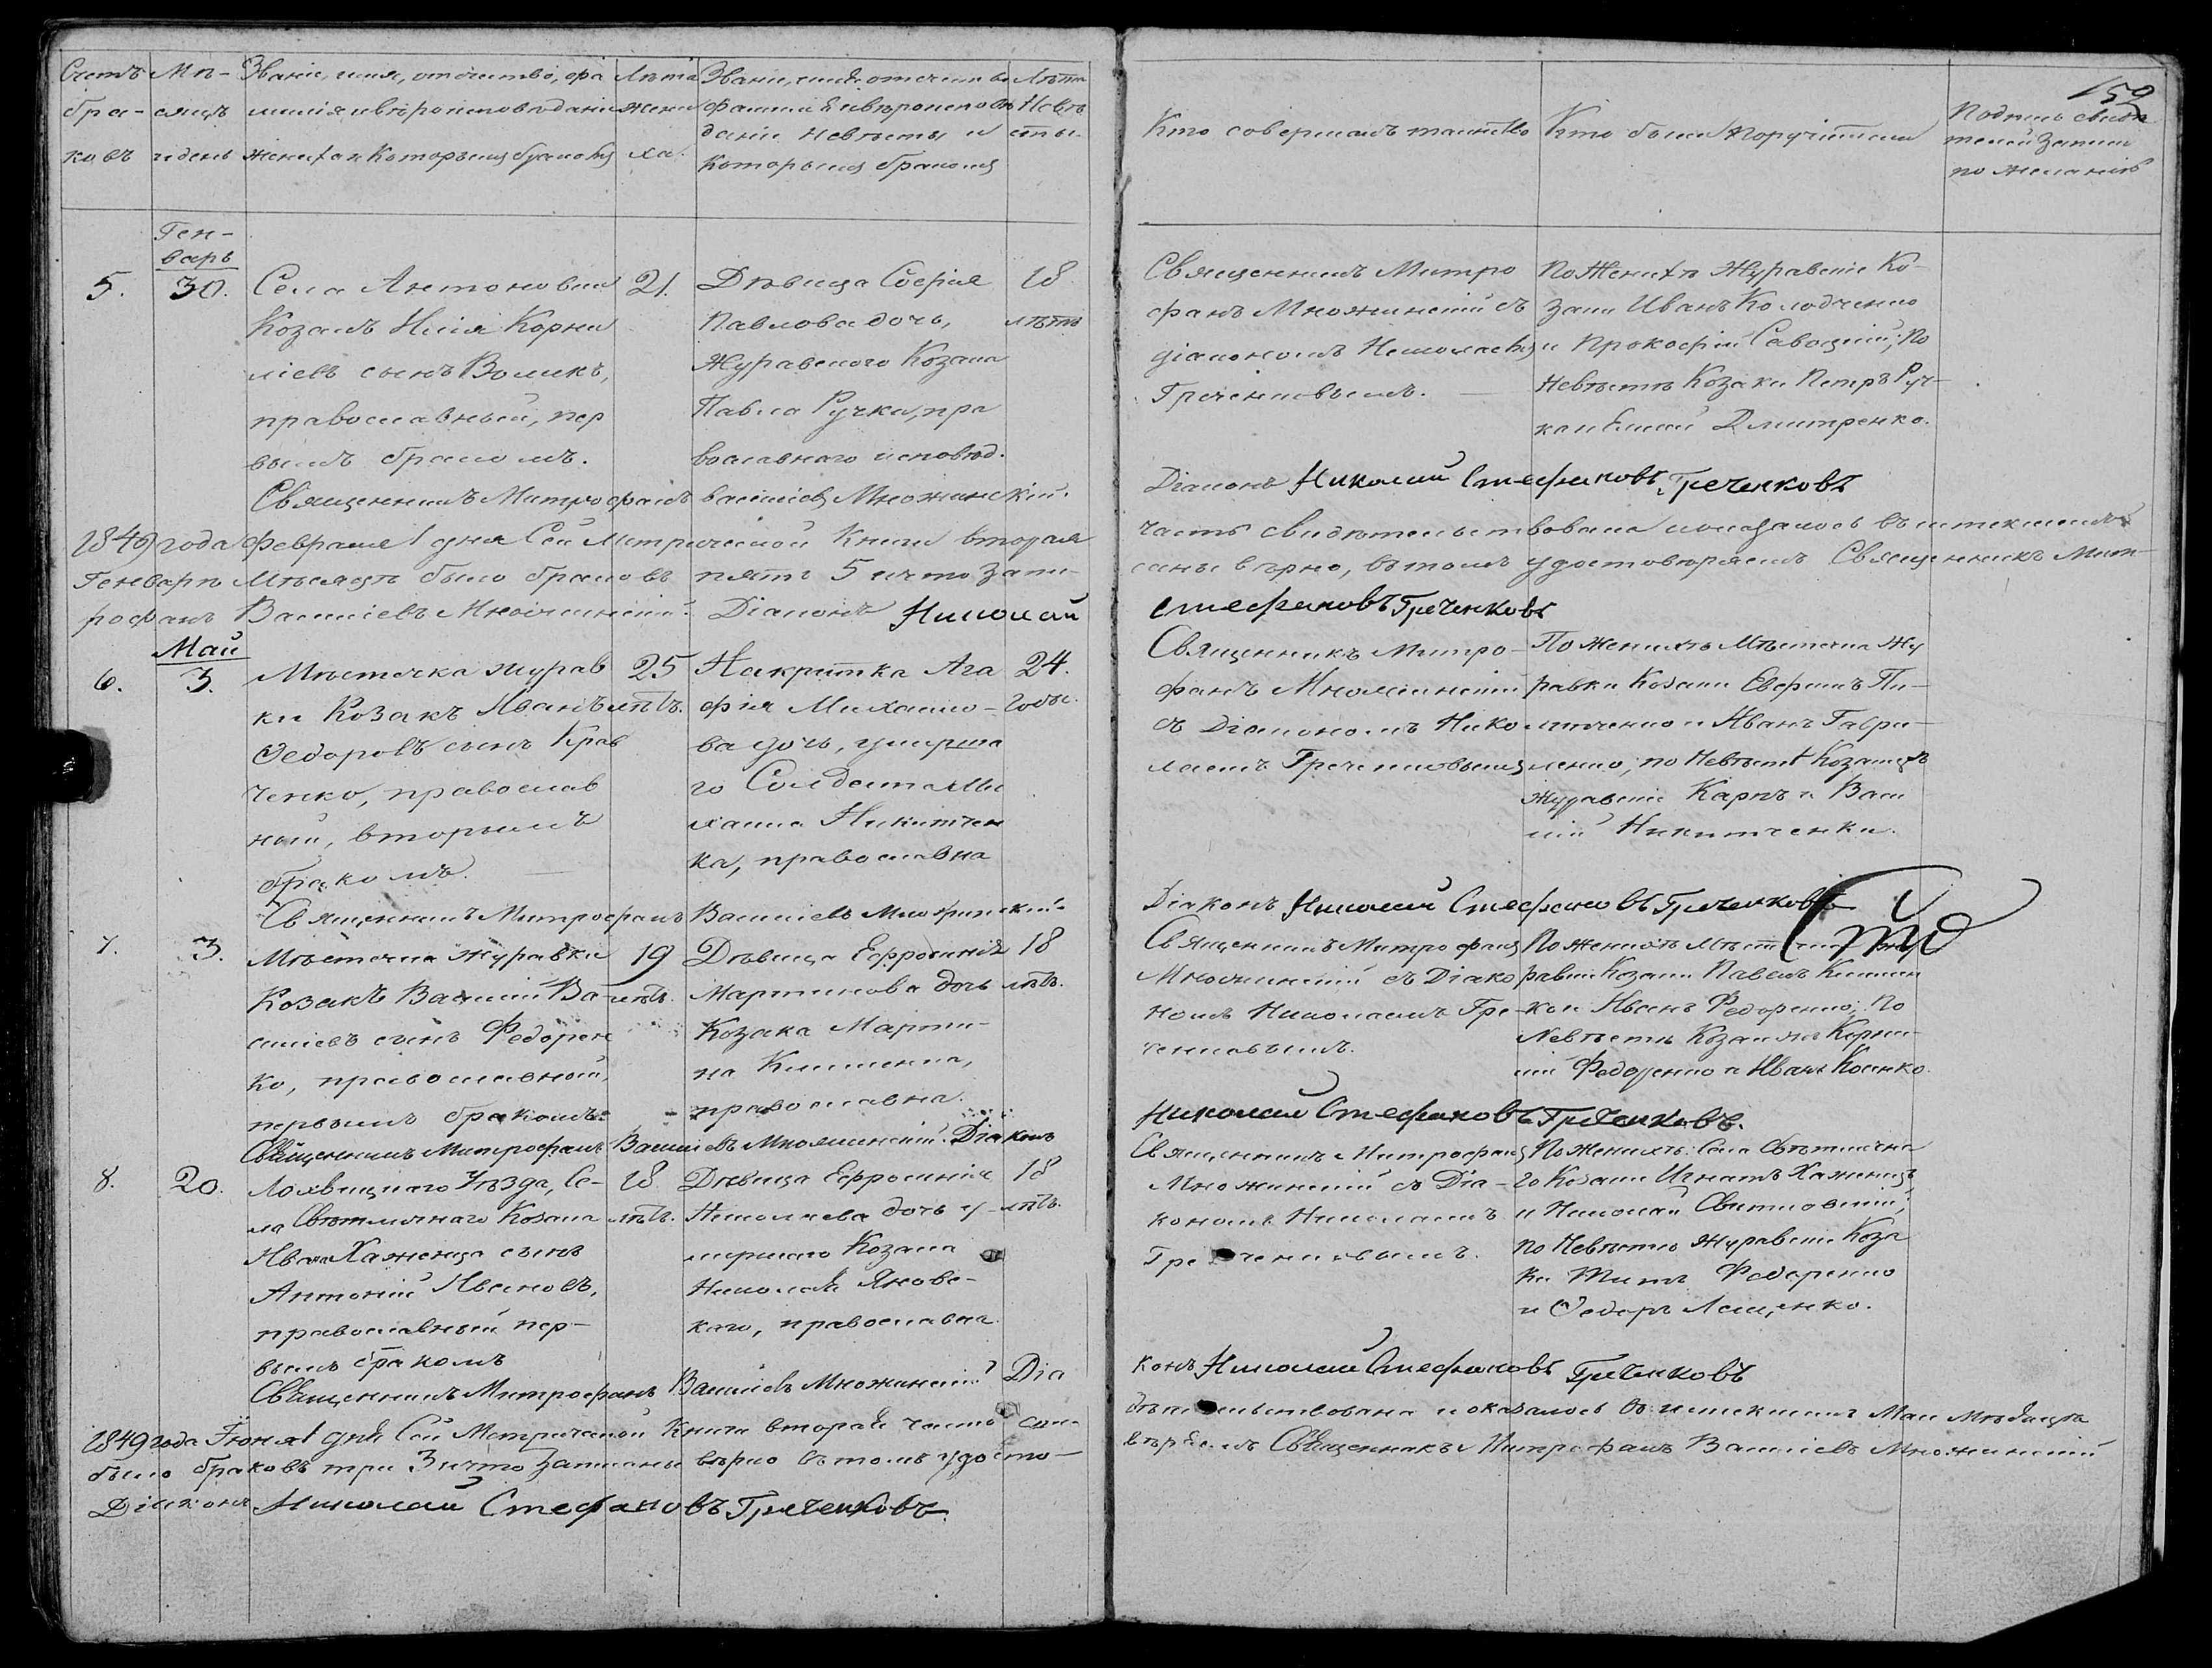 159
Счетъ бра-ковъ
Мѣ-сяцъ и день
Званіе, имя, отечество, фа
милія и вѣроисповѣданіе
жениха и которымъ бракомъ
Лѣта
жени
ха.
Званіе, имя, отечество
фамилія и вѣроисповѣ
даніе невѣсты и
которымъ бракомъ
Лѣта
Невѣ
сты.
Кто совершалъ таинство
Кто были поручители
Подпись свидѣ
телей записи
по желанію
Ген-
варь
5.
30.
Села Антоновки
Козакъ Илія Корни
ліевъ сынъ Воликъ,
православный, пер
вымъ бракомъ.
21.
Дѣвица Софія
Павлова дочь,
Журавского Козака
Павла Ручки, пра
вославнаго исповѣд.
18
лѣтъ
Священникъ Митро
фанъ Множинскій съ
діакономъ Николаемъ
Греченковымъ.
По Женихѣ Журавскіе Ко-
заки Иванъ Колодченко
и Прокофій Савоцкій; По
Невѣстѣ Козаки Петръ Руч-
ка и Дмитренко.
Священникъ Митрофанъ Василіевъ Множинскій.
Діаконъ Николай Стефановъ Греченковъ
1849 года Февраля 1 дня Сей Метрической Книги вторая
часть свидѣтельствована и оказалось въ истекшемъ
Генварѣ Мѣсяцѣ было браковъ пять 5 и что запи-
саны вѣрно, въ томъ удостовѣряемъ Священникъ Мит-
рофанъ Василіевъ Множинскій. Діаконъ Николай
Стефановъ Греченковъ
Май
6.
3.
Мѣстечка Журав
ки Козакъ Иванъ
Федоровъ сынъ Крав
ченко, православ
ный, вторымъ
бракомъ.
25
лѣтъ.
Накритка Ага
фія Михайло-
ва дочь, умерша
го Солдата Ми
хаила Никитчен
ка, православна
24.
Годы.
Священникъ Митро-
фанъ Множинскій
съ Діакономъ Нико
лаемъ Греченковымъ
По Женихѣ Мѣстечка Жу
равки Козаки Евфимъ Пи-
липченко и Иванъ Гаври-
ленко; по Невѣстѣ Козаки
Журавскіе Карпъ и Васи
лій Никитченки.
Священникъ Митрофанъ Василіевъ Множинскій.
Діаконъ Николай Стефановъ Греченковъ
7.
3.
Мѣстечка Журавки
Козакъ Василій Ва-
силіевъ сынъ Федорен
ко, православный,
первымъ бракомъ.
19
лѣтъ.
Дѣвица Ефросинія
Мартинова дочь
Козака Марти-
на Клименка,
православна.
18
лѣтъ.
Священникъ Митрофанъ
Множинскій съ Діако
номъ Николаемъ Гре-
ченковымъ.
По Женихѣ Мѣстечка Жу
равки Козаки Павелъ Климен
ко и Иванъ Федоренко; По
Невѣстѣ Козаки Корни-
лій Федоренко и Иванъ Косенко
Священникъ Митрофанъ Василіевъ Множинскій. Діаконъ
Николай Стефановъ Греченковъ.
8.
20.
Лохвицкаго Уѣзда, Се-
ла Свѣтличнаго Козака
Ивана Хаженца сынъ
Антоній Ивановъ,
православный пер-
вымъ бракомъ
18
лѣтъ.
Дѣвица Ефросинія
Николаева дочь у-
мершаго Козака
Николая Яновс-
каго, православна.
18
лѣтъ.
Священникъ Митрофанъ
Множинскій съ Діа-
кономъ Николаемъ
Греченковымъ.
По Женихѣ: Села Свѣтлична
го Козаки Игнатъ Хаженецъ
и Николай Свитловскій;
по Невѣстѣ Журавскіе Коза
ки Титъ Федоренко
и Федоръ Лященко.
Священникъ Митрофанъ Василіевъ Множинскій Діа
конъ Николай Стефановъ Греченковъ
1849 года Іюня 1 дня Сей Метрической Книги вторая часть сви-
дѣтельствована и оказалось въ истекшемъ Маи Мѣсяцѣ
было браковъ три 3 и что записаны вѣрно въ томъ удосто-
вѣряемъ Священникъ Митрофанъ Василіевъ Множинскій
Діаконъ Николай Стефановъ Греченковъ.